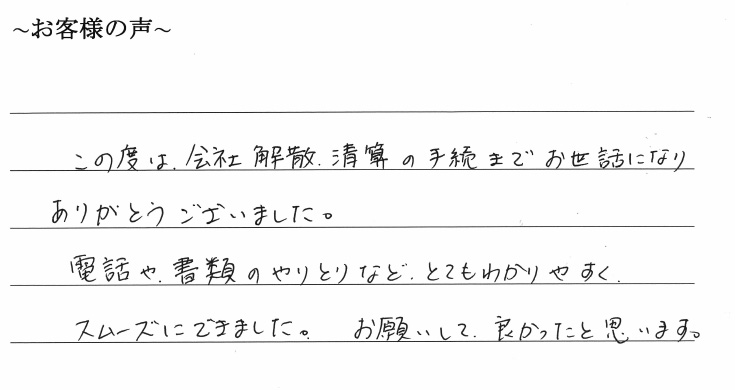 ~お客様の声~
この度は、会社解散、清算の手続まで お世話になり
ありがとうございました。
電話や、書類のやりとりなど、とてもわかりやすく、
スムーズにできました。 お願いして、良かったと思います。